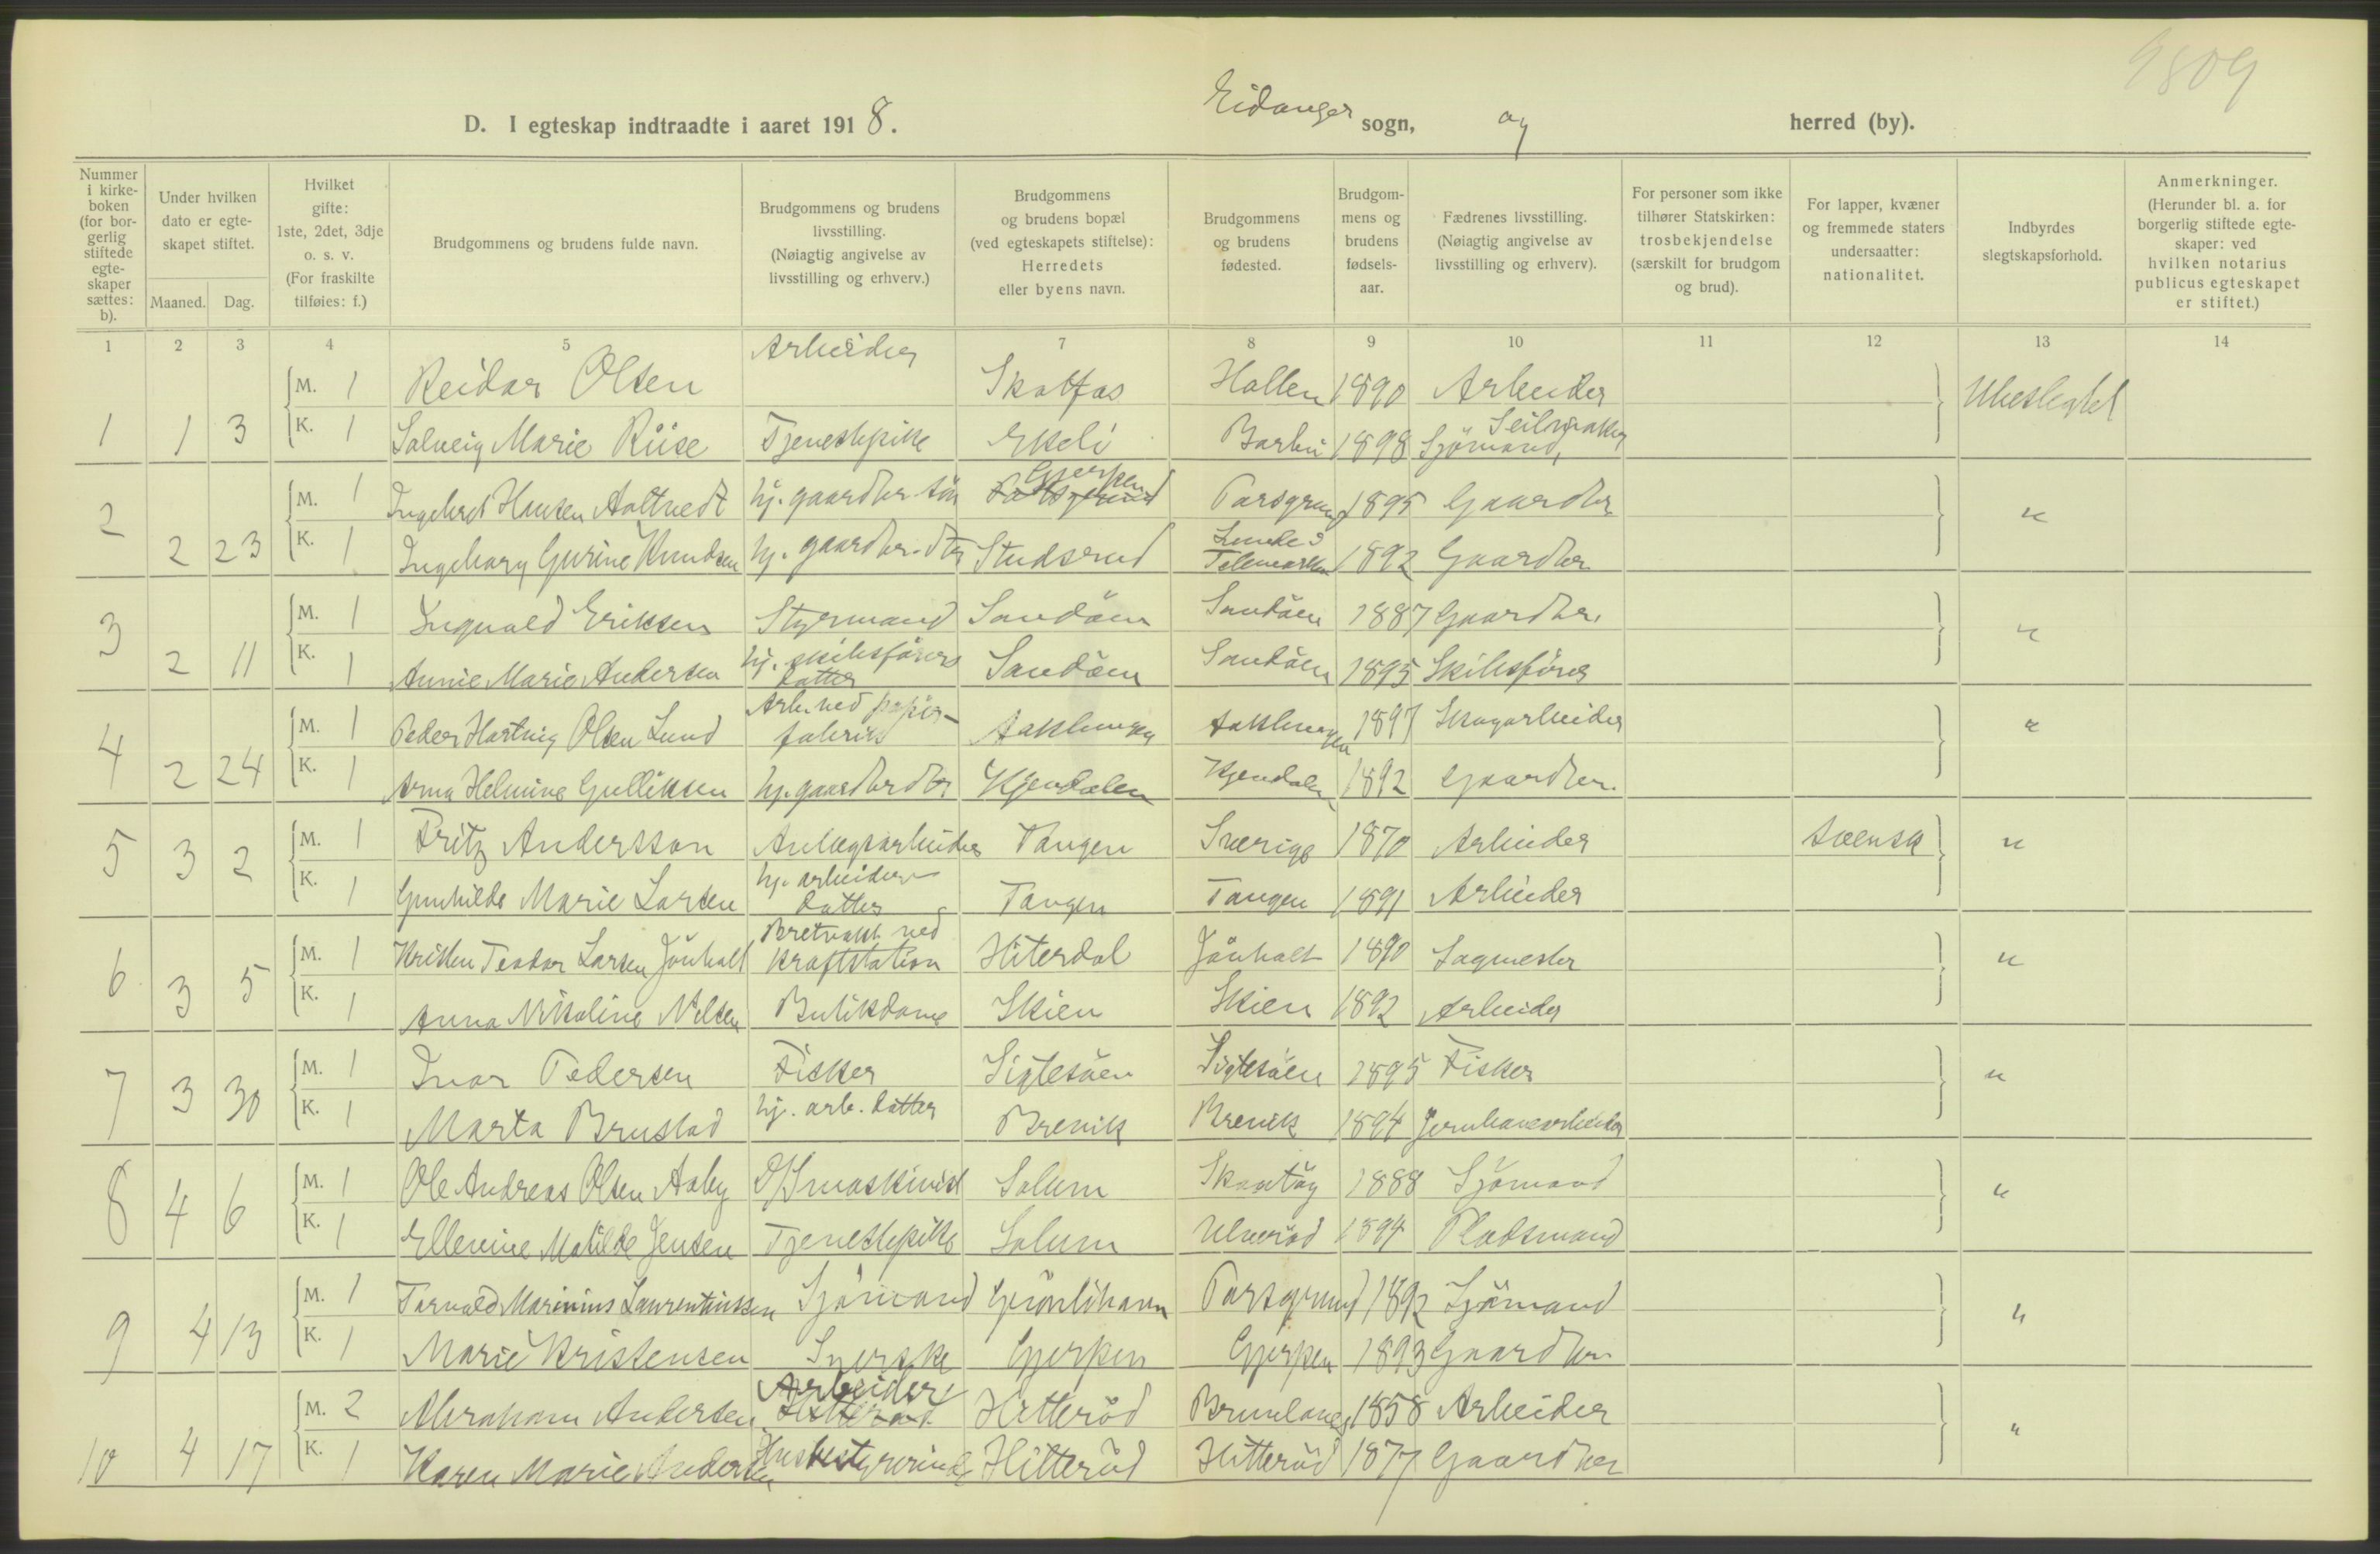 9809
D. I egteskap indtraadte i aaret 1918. Eidanger sogn, og herred (by).
Nummer i kirke-boken (for bor-gerlig stiftede egte-skaper sættes: b).
Under hvilken dato er egte-skapet stiftet.
Maaned. Dag.
Hvilket gifte: 1ste, 2det, 3dje o. s. v. (For fraskilte tilføies: f.)
Brudgommens og brudens fulde navn.
Brudgommens og brudens livsstilling. (Nøiagtig angivelse av livsstilling og erhverv.)
Brudgommens og brudens bopæl (ved egteskapets stiftelse): Herredets eller byens navn.
Brudgommens og brudens fødested.
Brudgom-mens og brudens fødsels-aar.
Fædrenes livsstilling. (Nøiagtig angivelse av livsstilling og erhverv).
For personer som ikke tilhører Statskirken: trosbekjendelse (særskilt for brudgom og brud).
For lapper, kvæner og fremmede staters undersaatter: nationalitet.
Indbyrdes slegtskapsforhold.
Anmerkninger. (Herunder bl. a. for borgerlig stiftede egte-skaper: ved hvilken notarius publicus egteskapet er stiftet.)
1 2 3 4 5 7 8 9 10 11 12 13 14
M. 1 Reidar Olsen Arbeider Skotfos Hollen 1890 Arbeider Ubeslegtet
1 1 3 K. 1 Solveig Marie Riise Tjenestepike Ekeli Barbu 1898 Sjømand, Seilmaker
2 M. 1 Ingebret Hansen Aaltvedt hj. gaardbr. søn Gjerpen Porsgrund 1895 Gaardbr. "
2 23 K. 1 Ingeborg Gurine Knudsen hj. gaardbr. dtr Studsrud Lunde i Telemarken 1892 Gaardbr
3 M. 1 Ingvald Eriksen Styrmand Sandöen Sandöen 1887 Gaardbr. "
2 11 K. 1 Annie Marie Andersen hj. skibsförers datter Sandöen Sandöen 1895 Skibsförer
4 M. 1 Peder Hartvig Olsen Lund Arb. ved papir-fabrik Aaklungen Aaklungen 1897 Skogarbeider "
2 24 K. 1 Anna Helmine Gulliksen hj. gaardbr dtr Kjendalen Kjendalen 1892 Gaardbr.
5 3 2 M. 1 Fritz Andersson Anlægsarbeider Tangen Sverige 1870 Arbeider svensk "
K. 1 Gunhilde Marie Larsen hj. arbeider datter Tangen Tangen 1891 Arbeider
6 3 5 M. 1 Kristen Teodor Larsen Jönholt Bretvakt ved kraftstation Hiterdal Jönholt 1890 Sagmester "
K. 1 Anna Nikoline Nilsen Butikdame Skien Skien 1892 Arbeider
7 3 30 M. 1 Ivar Pedersen Fisker Sigtesöen Sigtesöen 1895 Fisker "
K. 1 Marta Brustad hj. arb. datter Brevik Brevik 1894 Jernbanearbeider
8 4 6 M. 1 Ole Andreas Olsen Aaby D/S maskinist Solum 1888 Sjömand "
K. 1 Ellevine Matilde Jensen Tjenestepike Solum 1894 Pladsmand
9 4 13 M. 1 Torvald Marinius Laurentiussen Sjömand Grönlihavn Porsgrund 1892 Sjömand "
K. 1 Marie Kristensen Syerske Gjerpen Gjerpen 1893 Gaardbr.
10 4 17 M. 2 Abraham Andersen Arbeider Hitteröd Brunlanes 1858 Arbeider "
K. 1 Karen Marie Andersen Husbestyrerinde Hitteröd Hitteröd 1877 Gaardbr